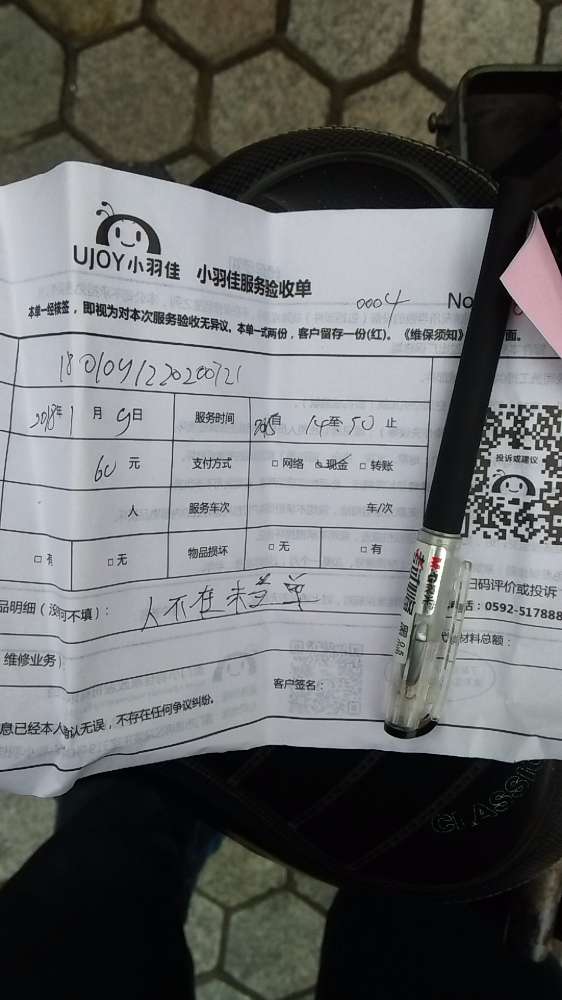 UJOY小羽佳 小羽佳服务验收单
0004 No
本单一经核签，即视为对本次服务验收无异议。本单一式两份，客户留存一份(红)。《维保须知》 面。
1801091220200721
2018年1月9日 服务时间 自14至50止
60元 支付方式 □网络 □现金 □转账
人 服务车次 车/次
□有 □无 物品损坏 □无 □有
品明细（没有可不填）： 人不在未签单
维修业务）
客户签名：
息已经本人确认无误，不存在任何争议纠纷。
投诉或建议
扫码评价或投诉
电话：0592-517888
材料总额：
M&G
0.5
CLASSIC